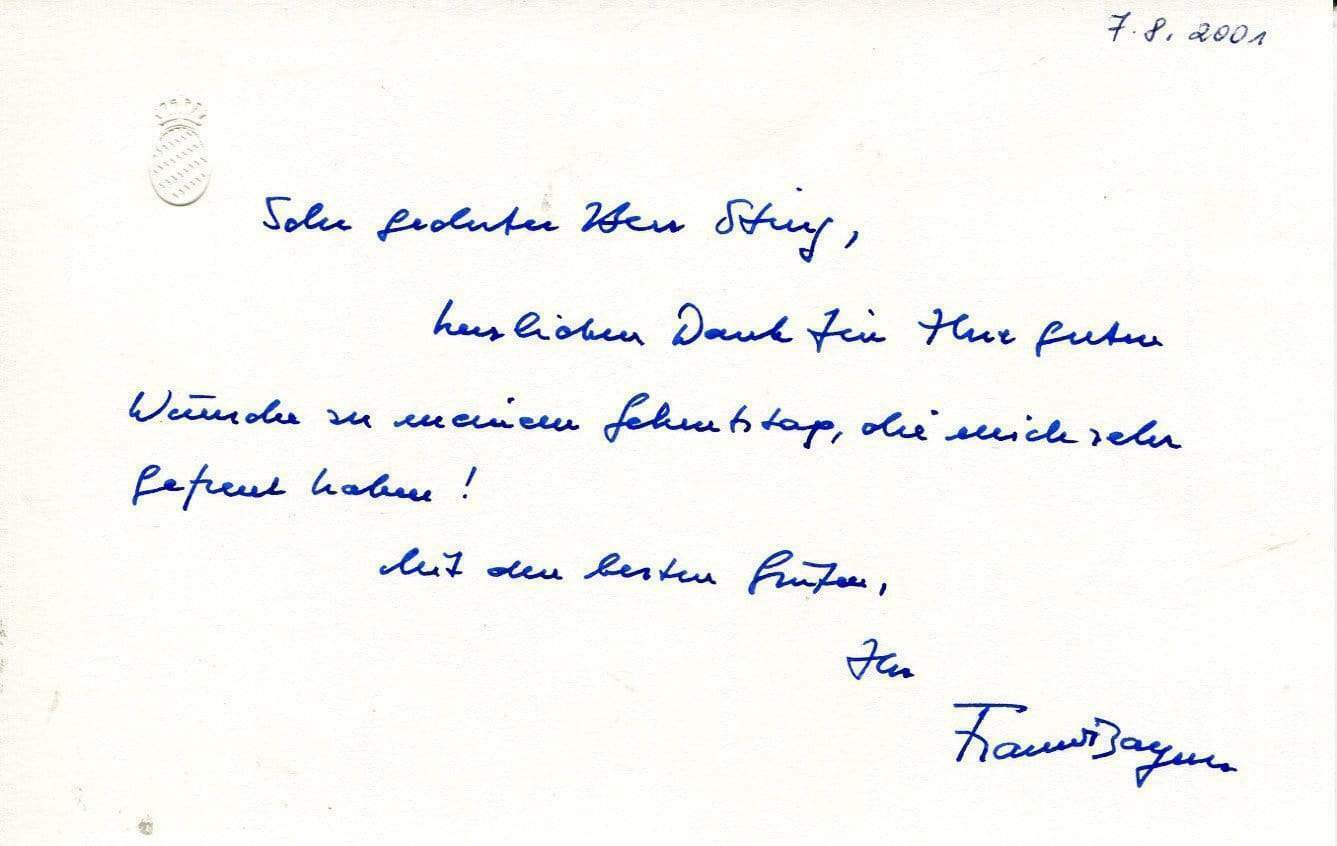 7.8.2001
Sehr geehrter Herr Sting,
herzlichen Dank für Ihre guten
Wünsche zu meinem Geburtstag, die mich sehr
gefreut haben!
Mit den besten Grüßen,
Ihr
Franz v Bayern